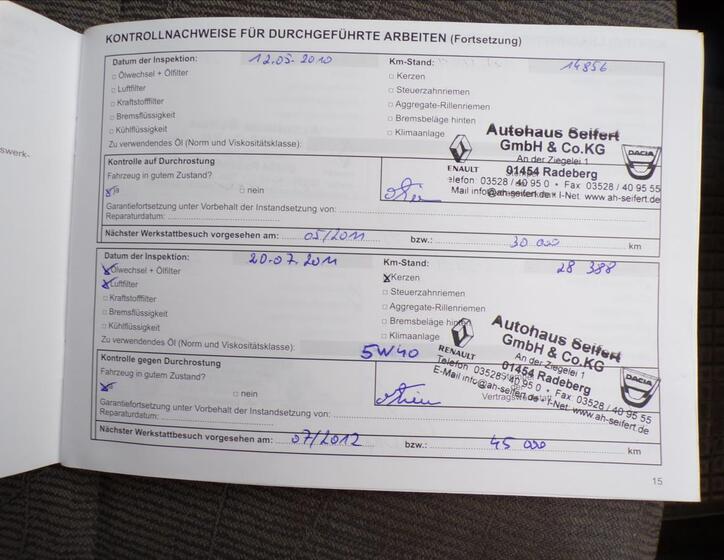 swerk-
KONTROLLNACHWEISE FÜR DURCHGEFÜHRTE ARBEITEN (Fortsetzung)
Datum der Inspektion: 12.05.2010 Km-Stand: 14856
Ölwechsel + Ölfilter Kerzen
Luftfilter Steuerzahnriemen
Kraftstofffilter Aggregate-Rillenriemen
Bremsflüssigkeit Bremsbeläge hinten
Kühlflüssigkeit Klimaanlage
Zu verwendendes Öl (Norm und Viskositätsklasse):
Autohaus Seifert
GmbH & Co.KG
An der Ziegelei 1
01454 Radeberg
RENAULT DACIA
Telefon: 03528 / 40 95 0 • Fax 03528 / 40 95 55
Mail info@ah-seifert.de • I-Net www.ah-seifert.de
Kontrolle auf Durchrostung
Fahrzeug in gutem Zustand?
ja nein
Garantiefortsetzung unter Vorbehalt der Instandsetzung von:
Reparaturdatum:
Nächster Werkstattbesuch vorgesehen am: 05/2011 bzw.: 30 000 km
Datum der Inspektion: 20.07.2011 Km-Stand: 28 388
Ölwechsel + Ölfilter Kerzen
Luftfilter Steuerzahnriemen
Kraftstofffilter Aggregate-Rillenriemen
Bremsflüssigkeit Bremsbeläge hinten
Kühlflüssigkeit Klimaanlage
Zu verwendendes Öl (Norm und Viskositätsklasse): 5W40
Autohaus Seifert
GmbH & Co.KG
An der Ziegelei 1
01454 Radeberg
RENAULT DACIA
Telefon: 03528 / 40 95 0 • Fax 03528 / 40 95 55
E-Mail info@ah-seifert.de • I-Net www.ah-seifert.de
Kontrolle gegen Durchrostung
Fahrzeug in gutem Zustand?
ja nein
Garantiefortsetzung unter Vorbehalt der Instandsetzung von:
Reparaturdatum:
Nächster Werkstattbesuch vorgesehen am: 07/2012 bzw.: 45 000 km
15